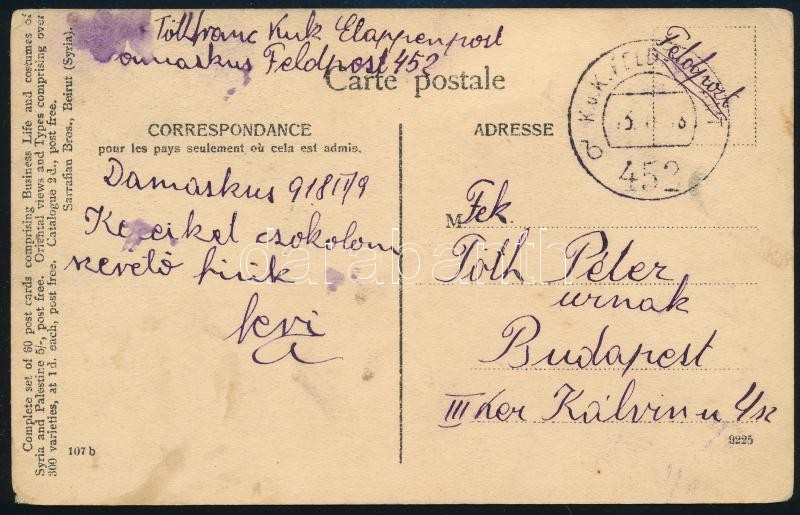 Tóth Feranc Kuk Etappenpost
Damaskus Feldpost 452
Carte postale
Feldpost
K.u.K. FELD
452
CORRESPONDANCE
pour les pays seulement où cela est admis.
ADRESSE
Damaskus 918 II/9
Kezeiket csokolom
szerető fiúk
M
Tek.
Tóth Péter
urnak
Budapest
III Ker Kálvin u 4 sz
107 b
9225
Complete set of 60 post cards comprising Business Life and costumes of
Syria and Palestine 5/-, post free. Oriental views and Types comprising over
300 varieties, at 1d. each, post free. Catalogue 2d., post free.
Sarrafian Bros., Beirut (Syria).
darabanth